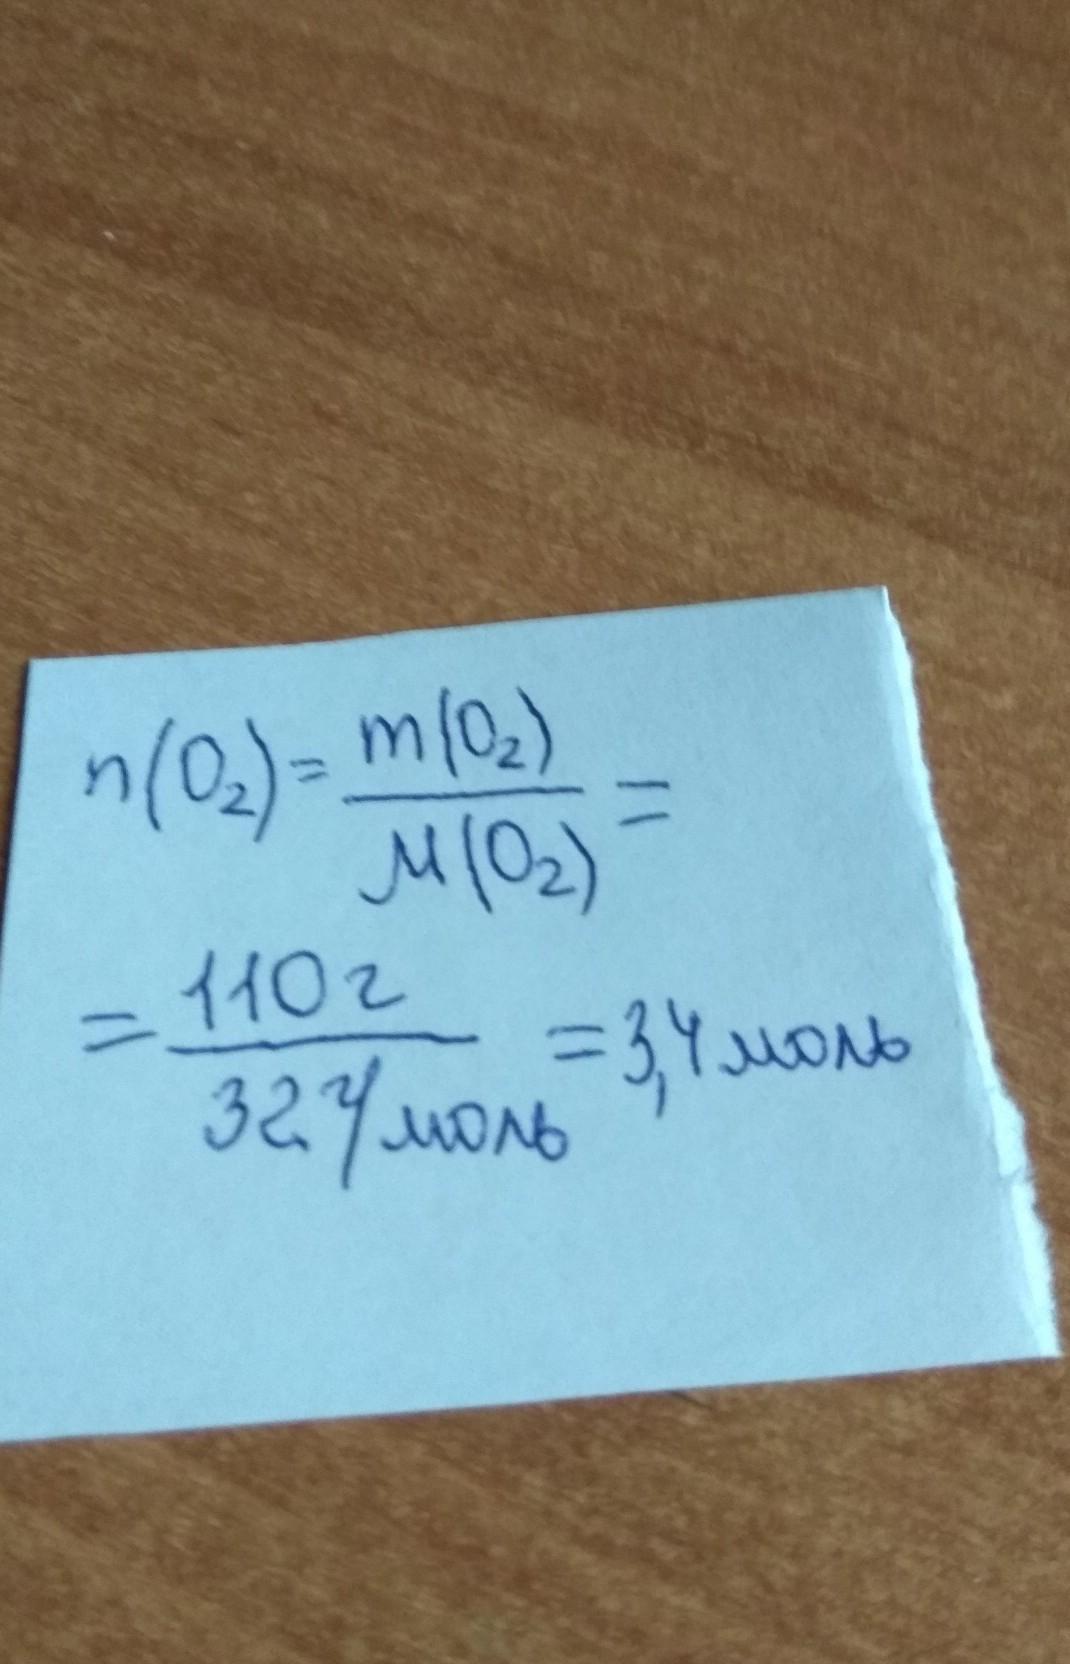 n(O₂) = m(O₂) / M(O₂) =
= 110 г / 32 г/моль = 3,4 моль